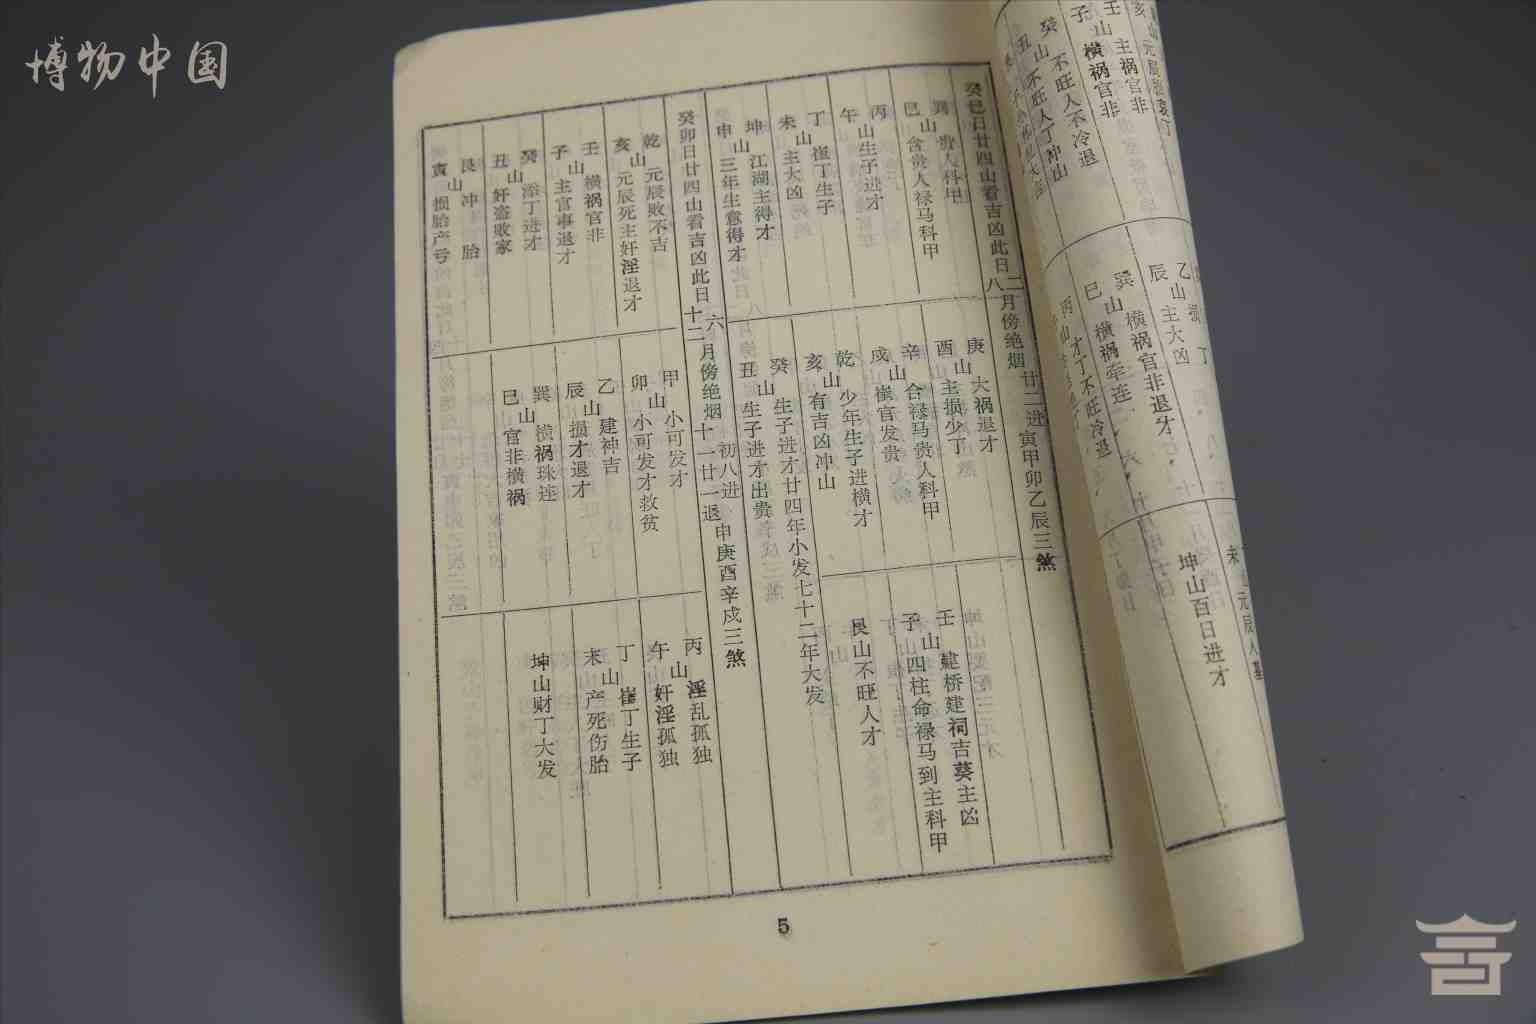 博物中国
癸巳日廿四山看吉凶此日二八月傍绝烟廿二进寅甲卯乙辰三煞
巽巳山贵人科甲
含贵人禄马科甲
丙午山生子进才
丁未山崔丁生子
主大凶
坤申山江湖主得才
三年生意得才
庚酉山大祸退才
主损少丁
辛戍山合禄马贵人科甲
崔官发贵
乾亥山少年生子进横才
有吉凶冲山
癸丑山生子进才廿四年小发七十二年大发
生子进才出贵
壬子山建桥建祠吉葵主凶
四柱命禄马到主科甲
艮山不旺人才
癸卯日廿四山看吉凶此日六十二月傍绝烟初八进十一廿一退申庚酉辛戍三煞
乾亥山元辰败不吉
元辰死主奸淫退才
壬子山横祸官非
主官事退才
癸丑山添丁进才
奸盗败家
艮寅山冲胎
损胎产亏
甲卯山小可发才
小可发才救贫
乙辰山建神吉
损才退才
巽巳山横祸珠连
官非横祸
丙午山淫乱孤独
奸淫孤独
丁未山崔丁生子
产死伤胎
坤山财丁大发
5
壬子山主祸官非
横祸官非
癸丑山不旺人不冷退
不旺人丁冲山
乙辰山
主大凶
巽巳山横祸官非退才
横祸牵连
坤山百日进才